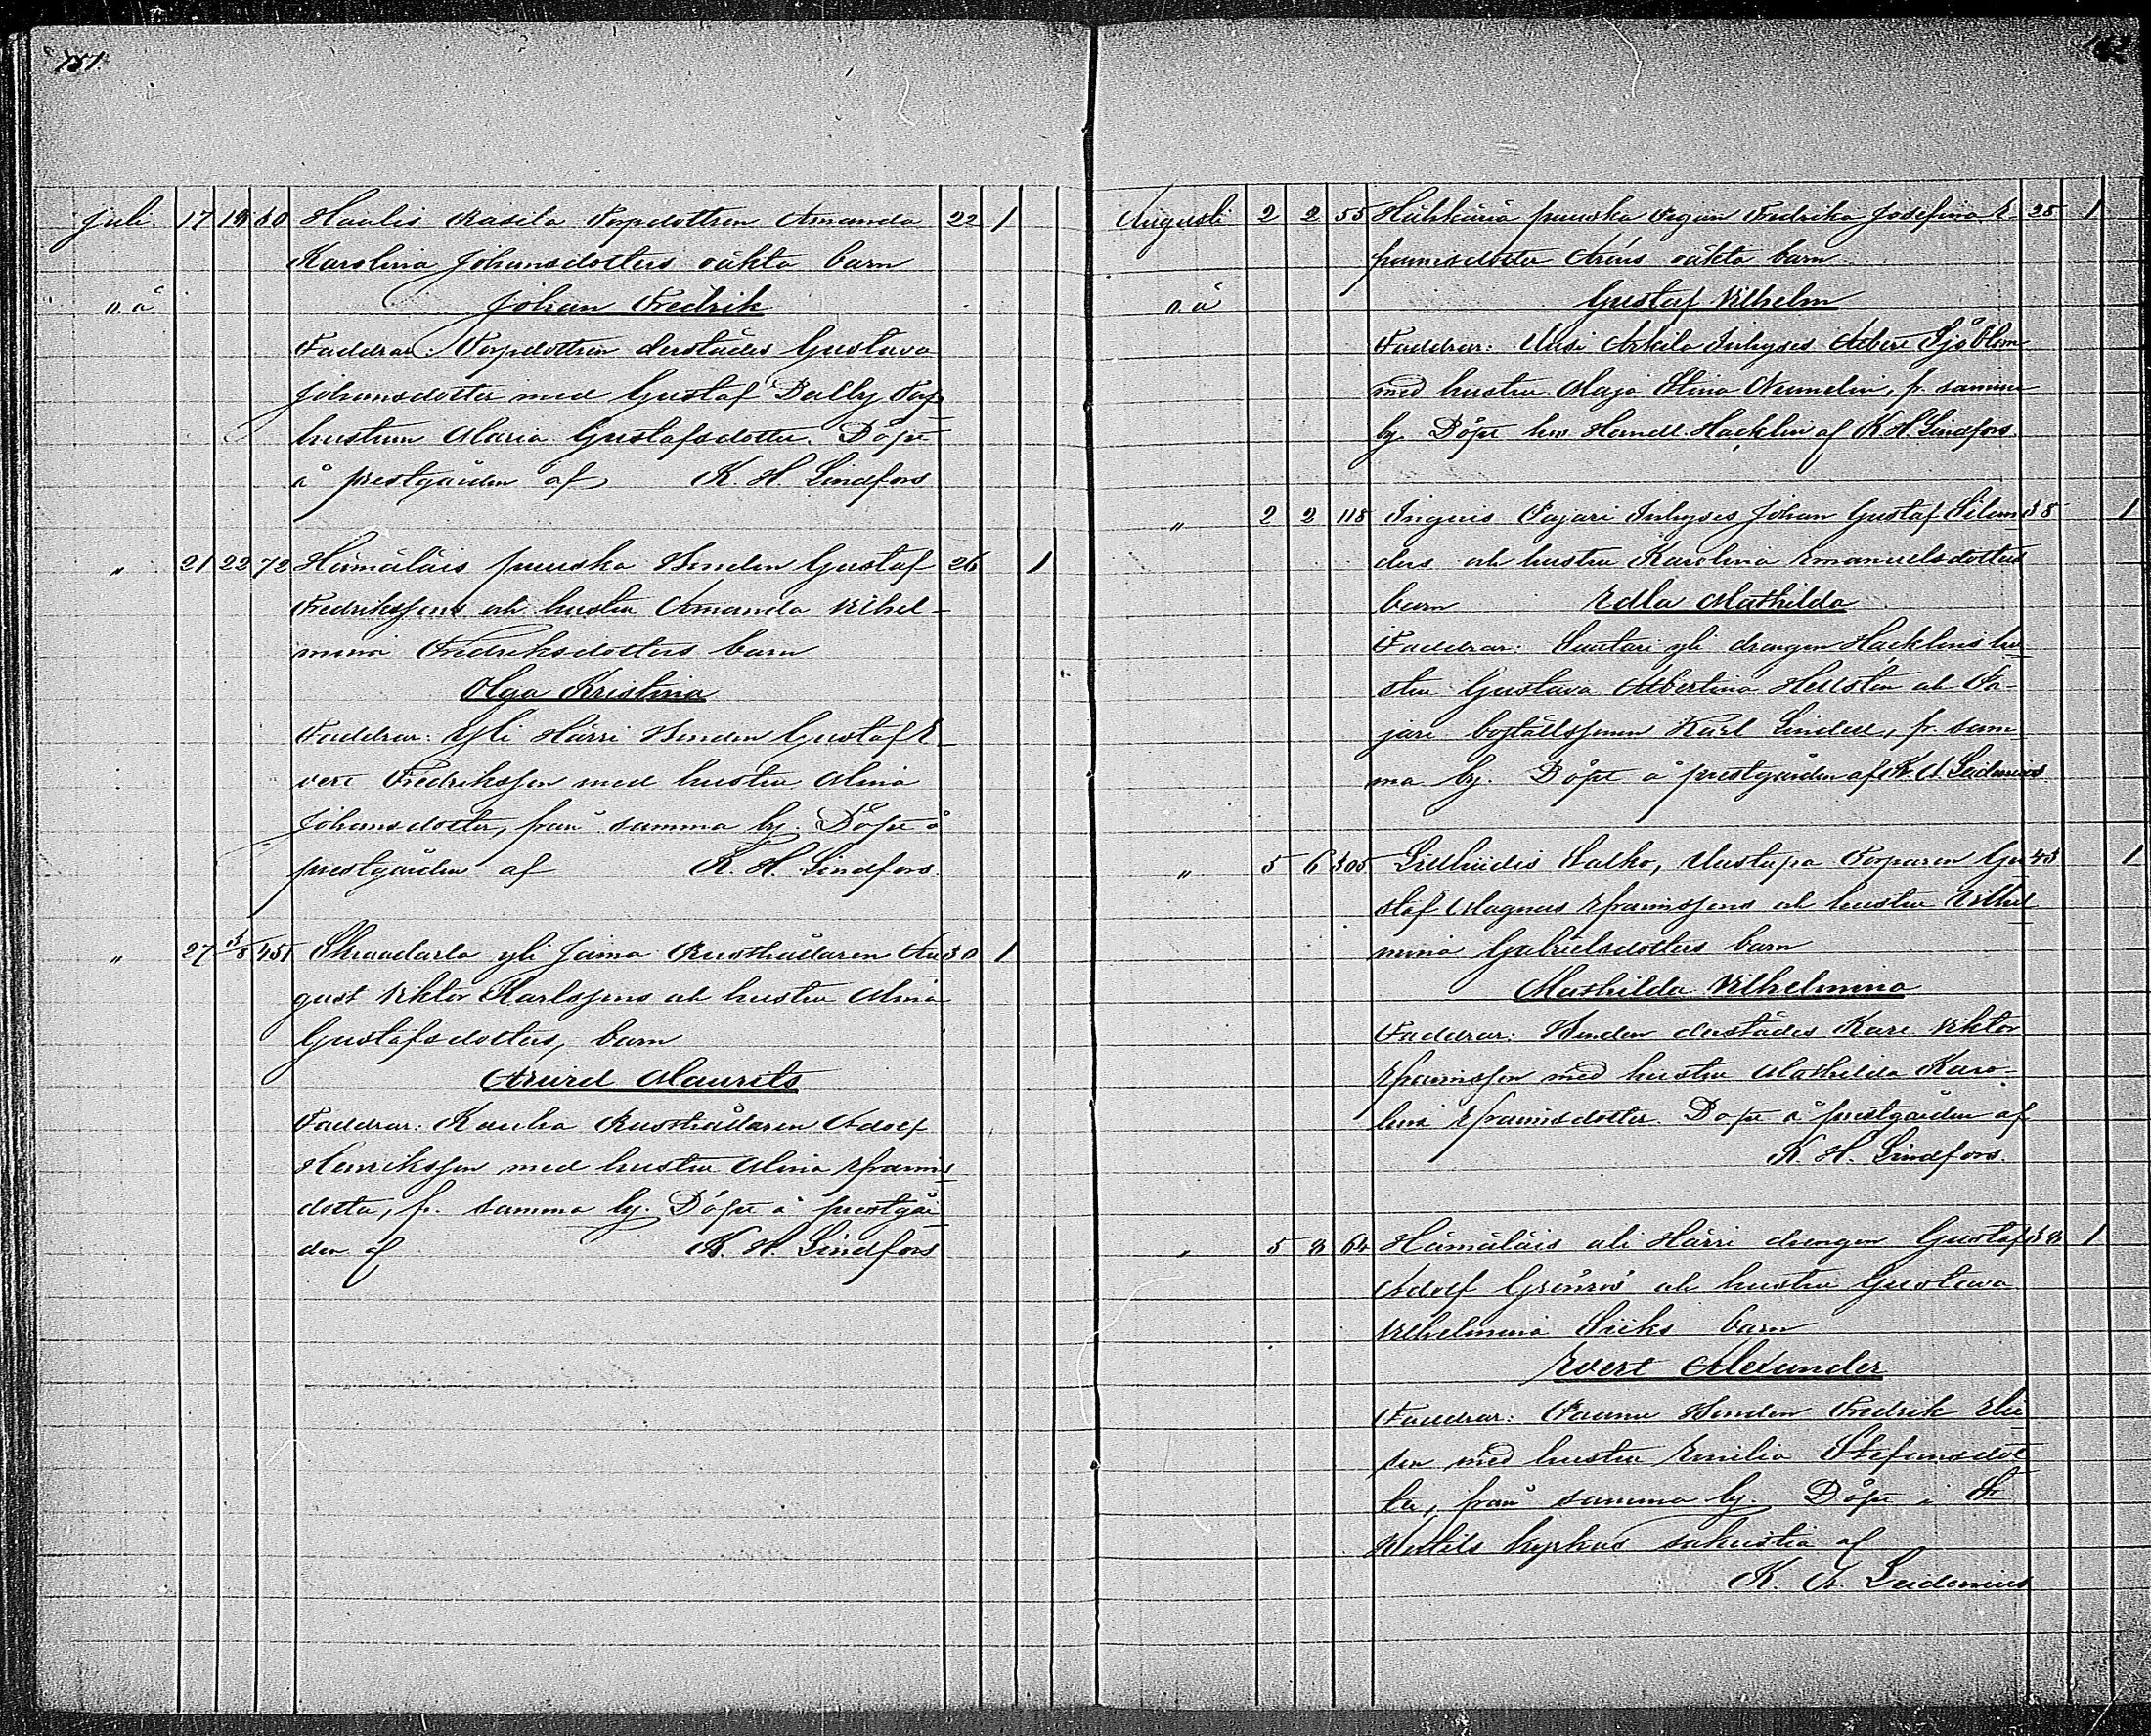 151.
Juli. 17 18 30 Haalis Rasila Torpdottren Amanda 22 1
Karolina Johansdotters oäkta barn
o. ä Johan Fredrik
Faddrar: Torpdottren derstädes Gustava
Johansdotter med Gustaf Dalby Torp
hustrun Maria Gustafsdotter. Döpt
å prestgården af K. H. Lindfors
" 21 22 72 Hämäläis puuska Bonden Gustaf 26 1
Fredrikssons och hustru Amanda Vilhel-
mina Fredriksdotters barn
Olga Kristina
Faddrar: Yli Härri Bonden Gustaf E-
vert Fredriksson med hustru Mina
Johansdotter, från samma by. Döpt å
prestgården af K. H. Lindfors.
" 27 451 yli Jama Rusthållaren Au 30 1
gust Viktor Karlssons och hustru Mina
Gustafsdotters, barn
Arvid Maurits
Faddrar: Rusthållaren Adolf
Henriksson med hustru Mina Efraims
dotter, fr. samma by. Döpt å prestgår
den af K. H. Lindfors
152
Augusti 2 2 55 puuska Pigan Fredrika Josefina E- 25 1
fraimsdotter oäkta barn
o. ä Gustaf Vilhelm
Faddrar: Uusi Arkila Inhyses Albert Sjöblom
med hustru Maja Stina Numelin, fr. samma
by. Döpt hos Hacklin af K. H. Lindfors.
" 2 2 118 Pajari Inhyses Johan Gustaf 38 1
ders och hustru Karolina Emanuelsdotters
barn Edla Mathilda
Faddrar: Suutari yli drengen Hacklins hu
stru Gustava Albertina Hellstén och Pa-
jari Karl Lindell, fr. sam
ma by. Döpt å prestgården af K. A. Leidenius
" 5 6 305 Salko, Uustupa Torparen Gu 43 1
staf Magnus Efraimssons och hustru Vilhel
mina Gabrielsdotters barn
Mathilda Vilhelmina
Faddrar: Bonden derstädes Karl Viktor
Efraimsson med hustru Mathilda Karo-
lina Efraimsdotter. Döpt å prestgården af
K. H. Lindfors.
" 5 8 64 Hämäläis ali Härri drengen Gustaf 38 1
Adolf Grönros och hustru Gustava
Vilhelmina barn
Evert Alexander
Faddrar: Bonden Fredrik
son med hustru Emilia Stefansdot
ter, från samma by. Döpt i St
kyrkas sakristia af
K. A. Leidenius